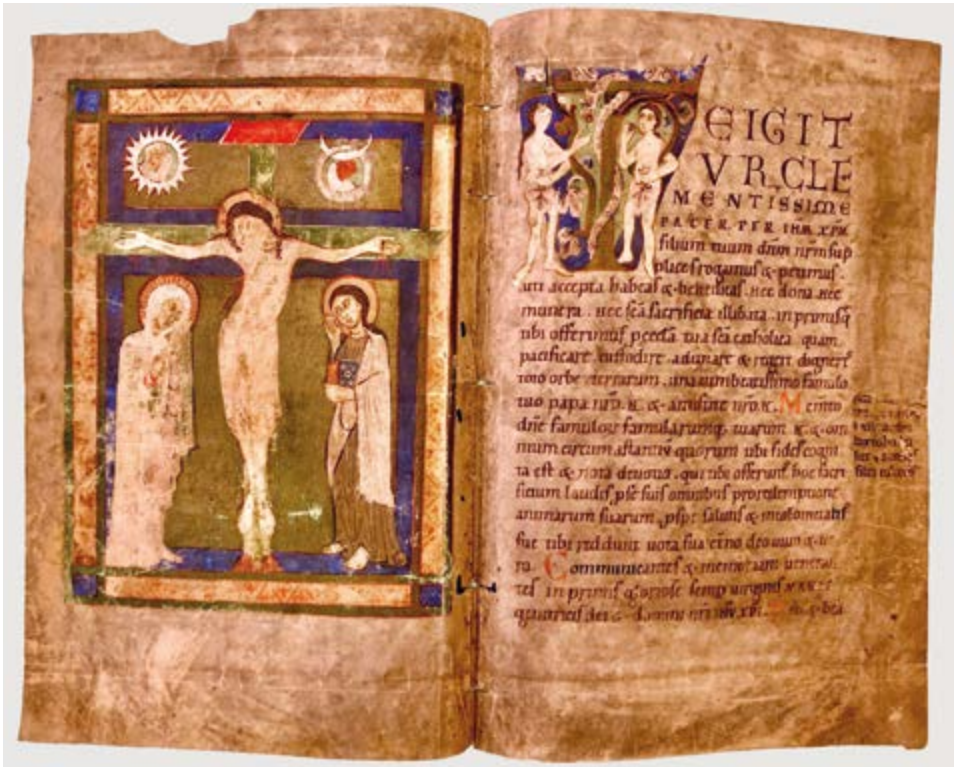 TEIGIT
VR CLE
MENTISSIME
PATER. PER IHM. XPM.
filium tuum dnm nrm sup
plices rogamus & petimus.
uti accepta habeas & benedicas. hec dona hec
munera. hec sca sacrificia illibata. in primis q
tibi offerimus p eccla tua sca catholica. quam
pacificare. custodire. adunare & regere digneris
toto orbe terrarum. una cum beatissimo famulo
tuo papa nro. N. & antistite nro. N. Memto
dne famulor famularumq. tuarum N. & om
nium circum astantiu quorum tibi fides cogni
ta est & nota deuotio. qui tibi offerunt hoc sacri
ficium laudis. p se suis omnibus. pro redemptione
animarum suarum. p spe salutis & incolomitatis
sue tibi reddunt uota sua etno deo uiuo & ue
ro. Communicantes & memoriam ueneran
tes in primis gloriose semp uirginis MARIE
genitricis dei & domini nri ihu xpi. & bea